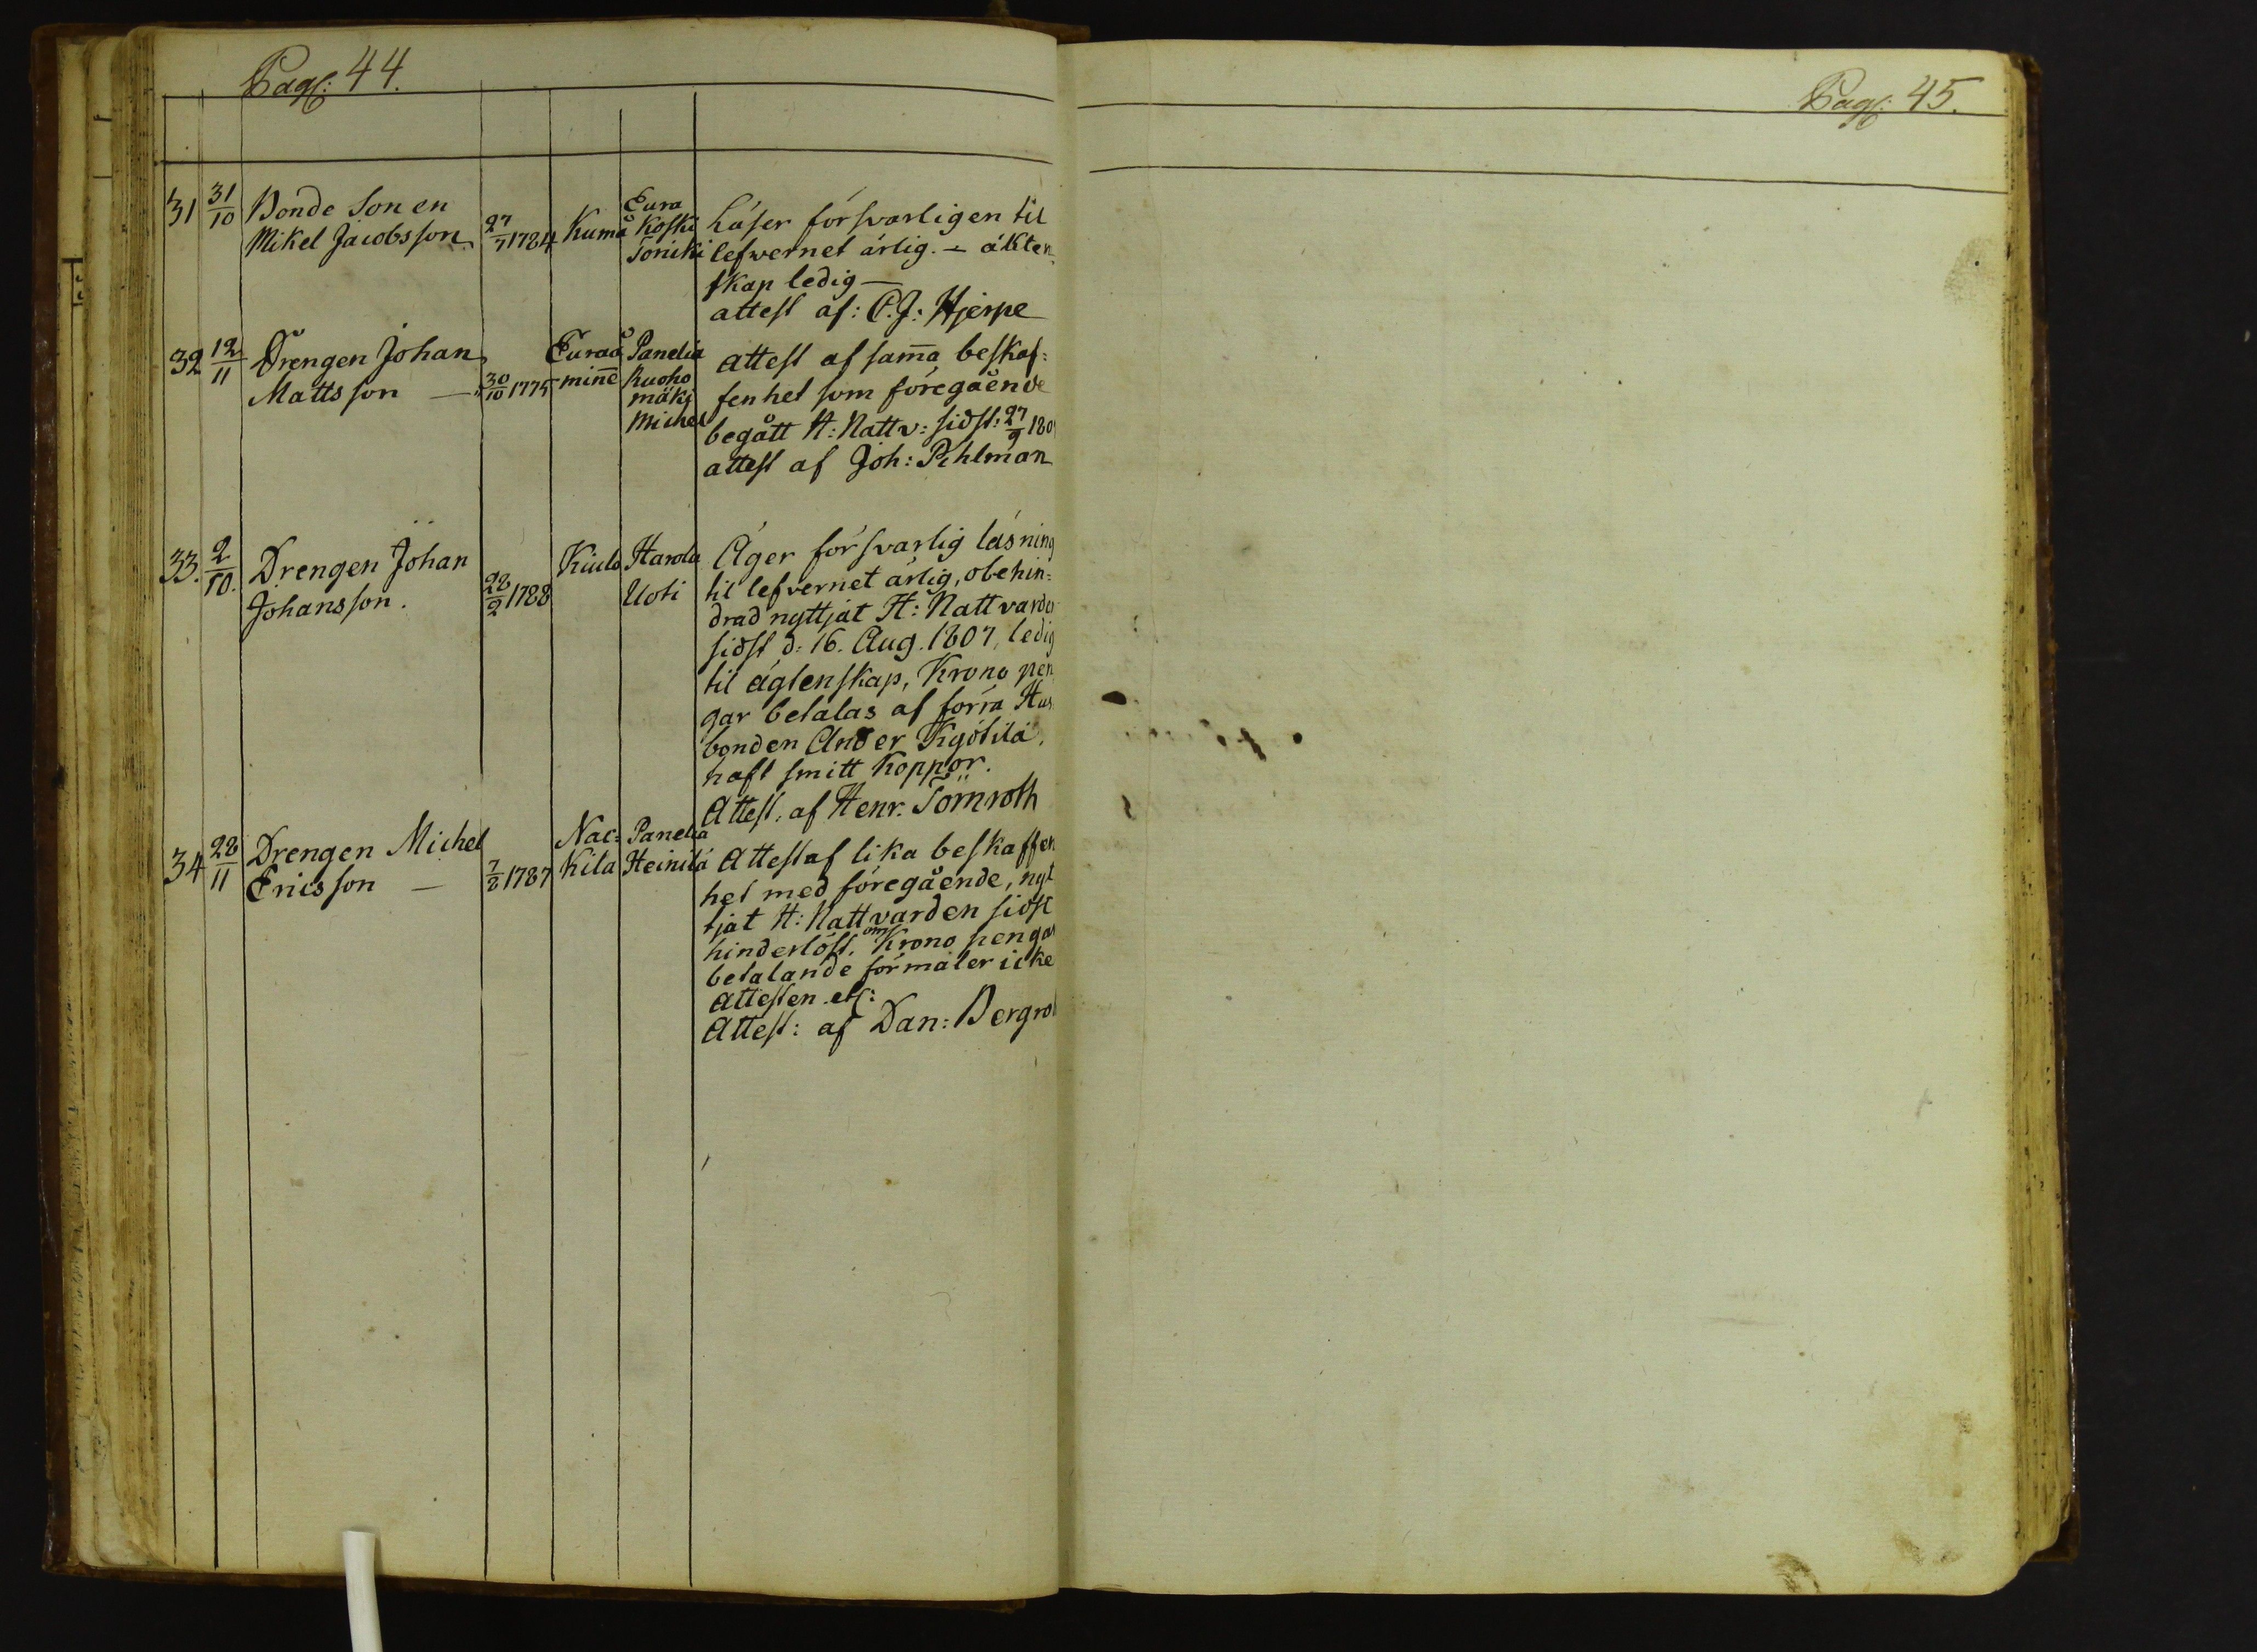 Pag: 44.
Pag: 45.
31 31/10 Bonde Sonen Mikel Jacobsson 27/7 1784 Kumå Eura Koski Toniki
Läser försvarligen til
lefwernet ärlig. – äkten
skap ledig –
attest af: C. J: Hjerpe
32 12/11 Drengen Johan Mattsson — 30/10 1775 Euraå mine Panelia Ruoho mäki Michel
attest af sam̄a beskaf:
fenhet som föregående
begått H: Nattv: sidst: 27/9 180
attest af Joh: Pihlman
33. 2/10. Drengen Johan Johansson. 28/2 1788 Kiulo Harola Uoti
Äger försvarlig läsning
til lefvernet ärlig, obehin:
drad nyttjat H: Nattvarde
sidst d: 16. Aug. 1807, ledig
til ägtenskap, Krono pen
gar betalas af förra Hus
bonden Ander Kyötilä,
haft smitt Koppor.
Attest. af Henr. Törnroth
34 28/11 Drengen Michel Ericsson — 7/8 1787 Nac: Kila Panelia Heinilä
Attest af lika beskaffen
het med föregående, nyt
tjat H: Nattvarden sidst
hinderlöst. om Krono pengar
betalande förmäler icke
attesten etc:
Attest: af Dan: Bergro